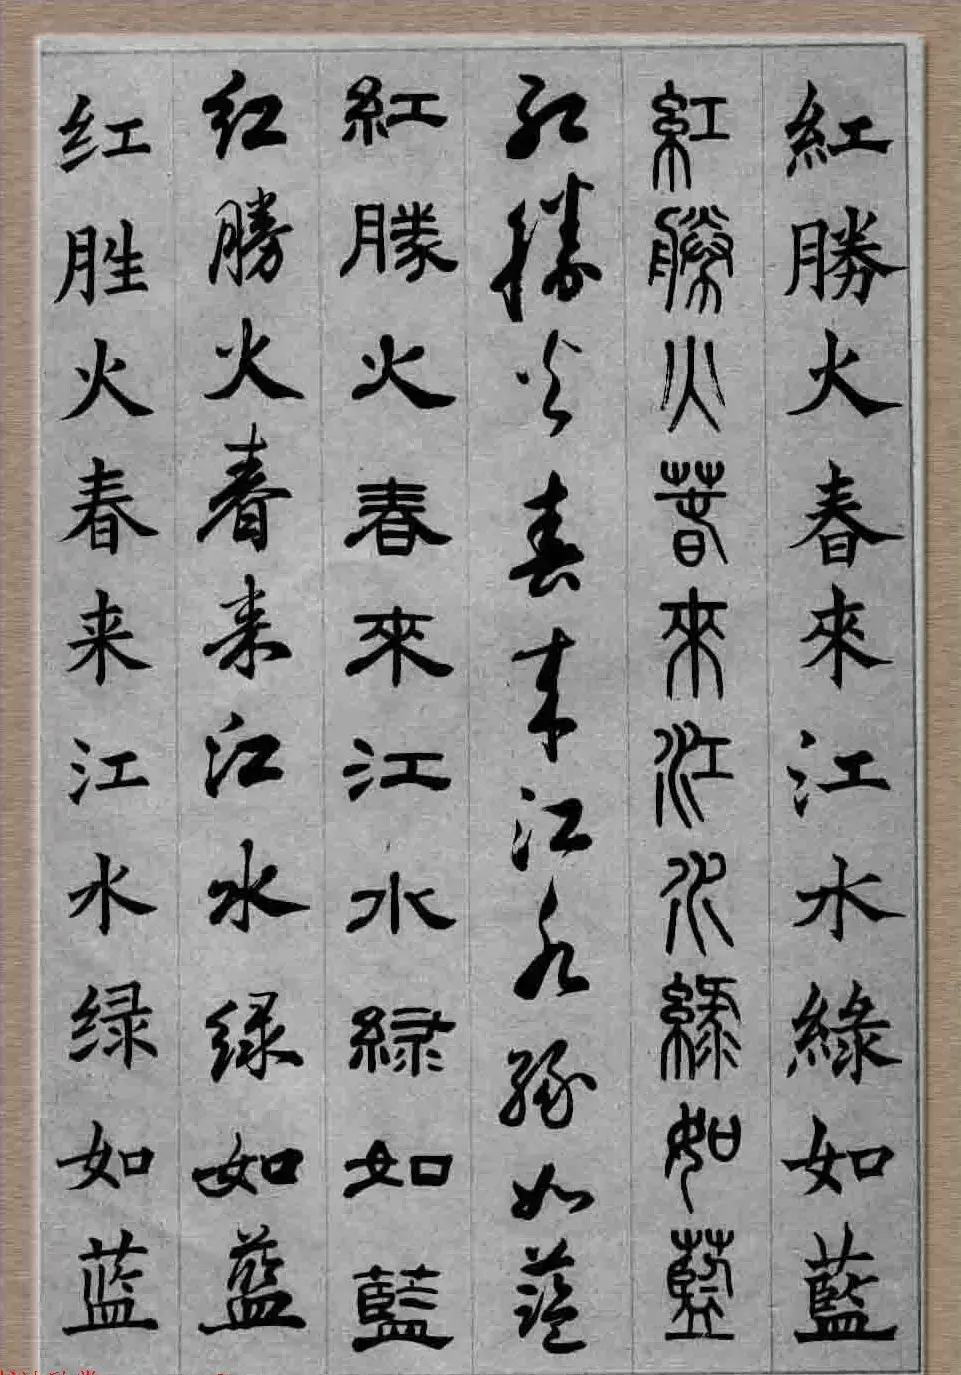 紅勝火春來江水綠如藍
紅勝火春來江水綠如藍
红勝火春来江水绿如蓝
紅勝火春來江水緑如藍
红勝火春来江水绿如蓝
红胜火春来江水绿如蓝